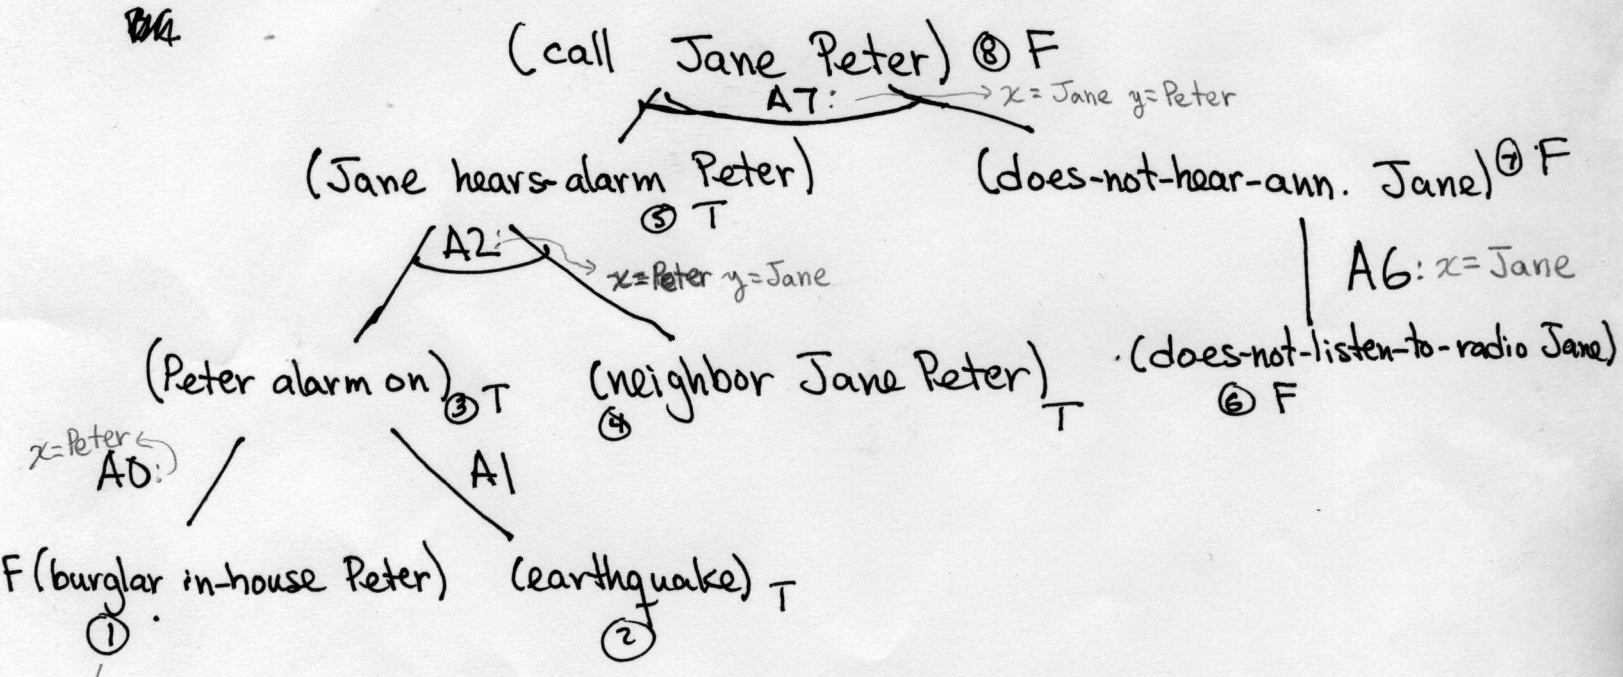 (call Jane Peter) ⑧ F
A7: → x = Jane y = Peter
(Jane hears-alarm Peter)
⑤ T
(does-not-hear-ann. Jane) ⑦ F
A2: → x = Peter y = Jane
A6: x = Jane
(Peter alarm on) ③ T
(neighbor Jane Peter)
④ T
(does-not-listen-to-radio Jane)
⑥ F
x = Peter
A0:
A1
F (burglar in-house Peter)
①
(earthquake) T
②